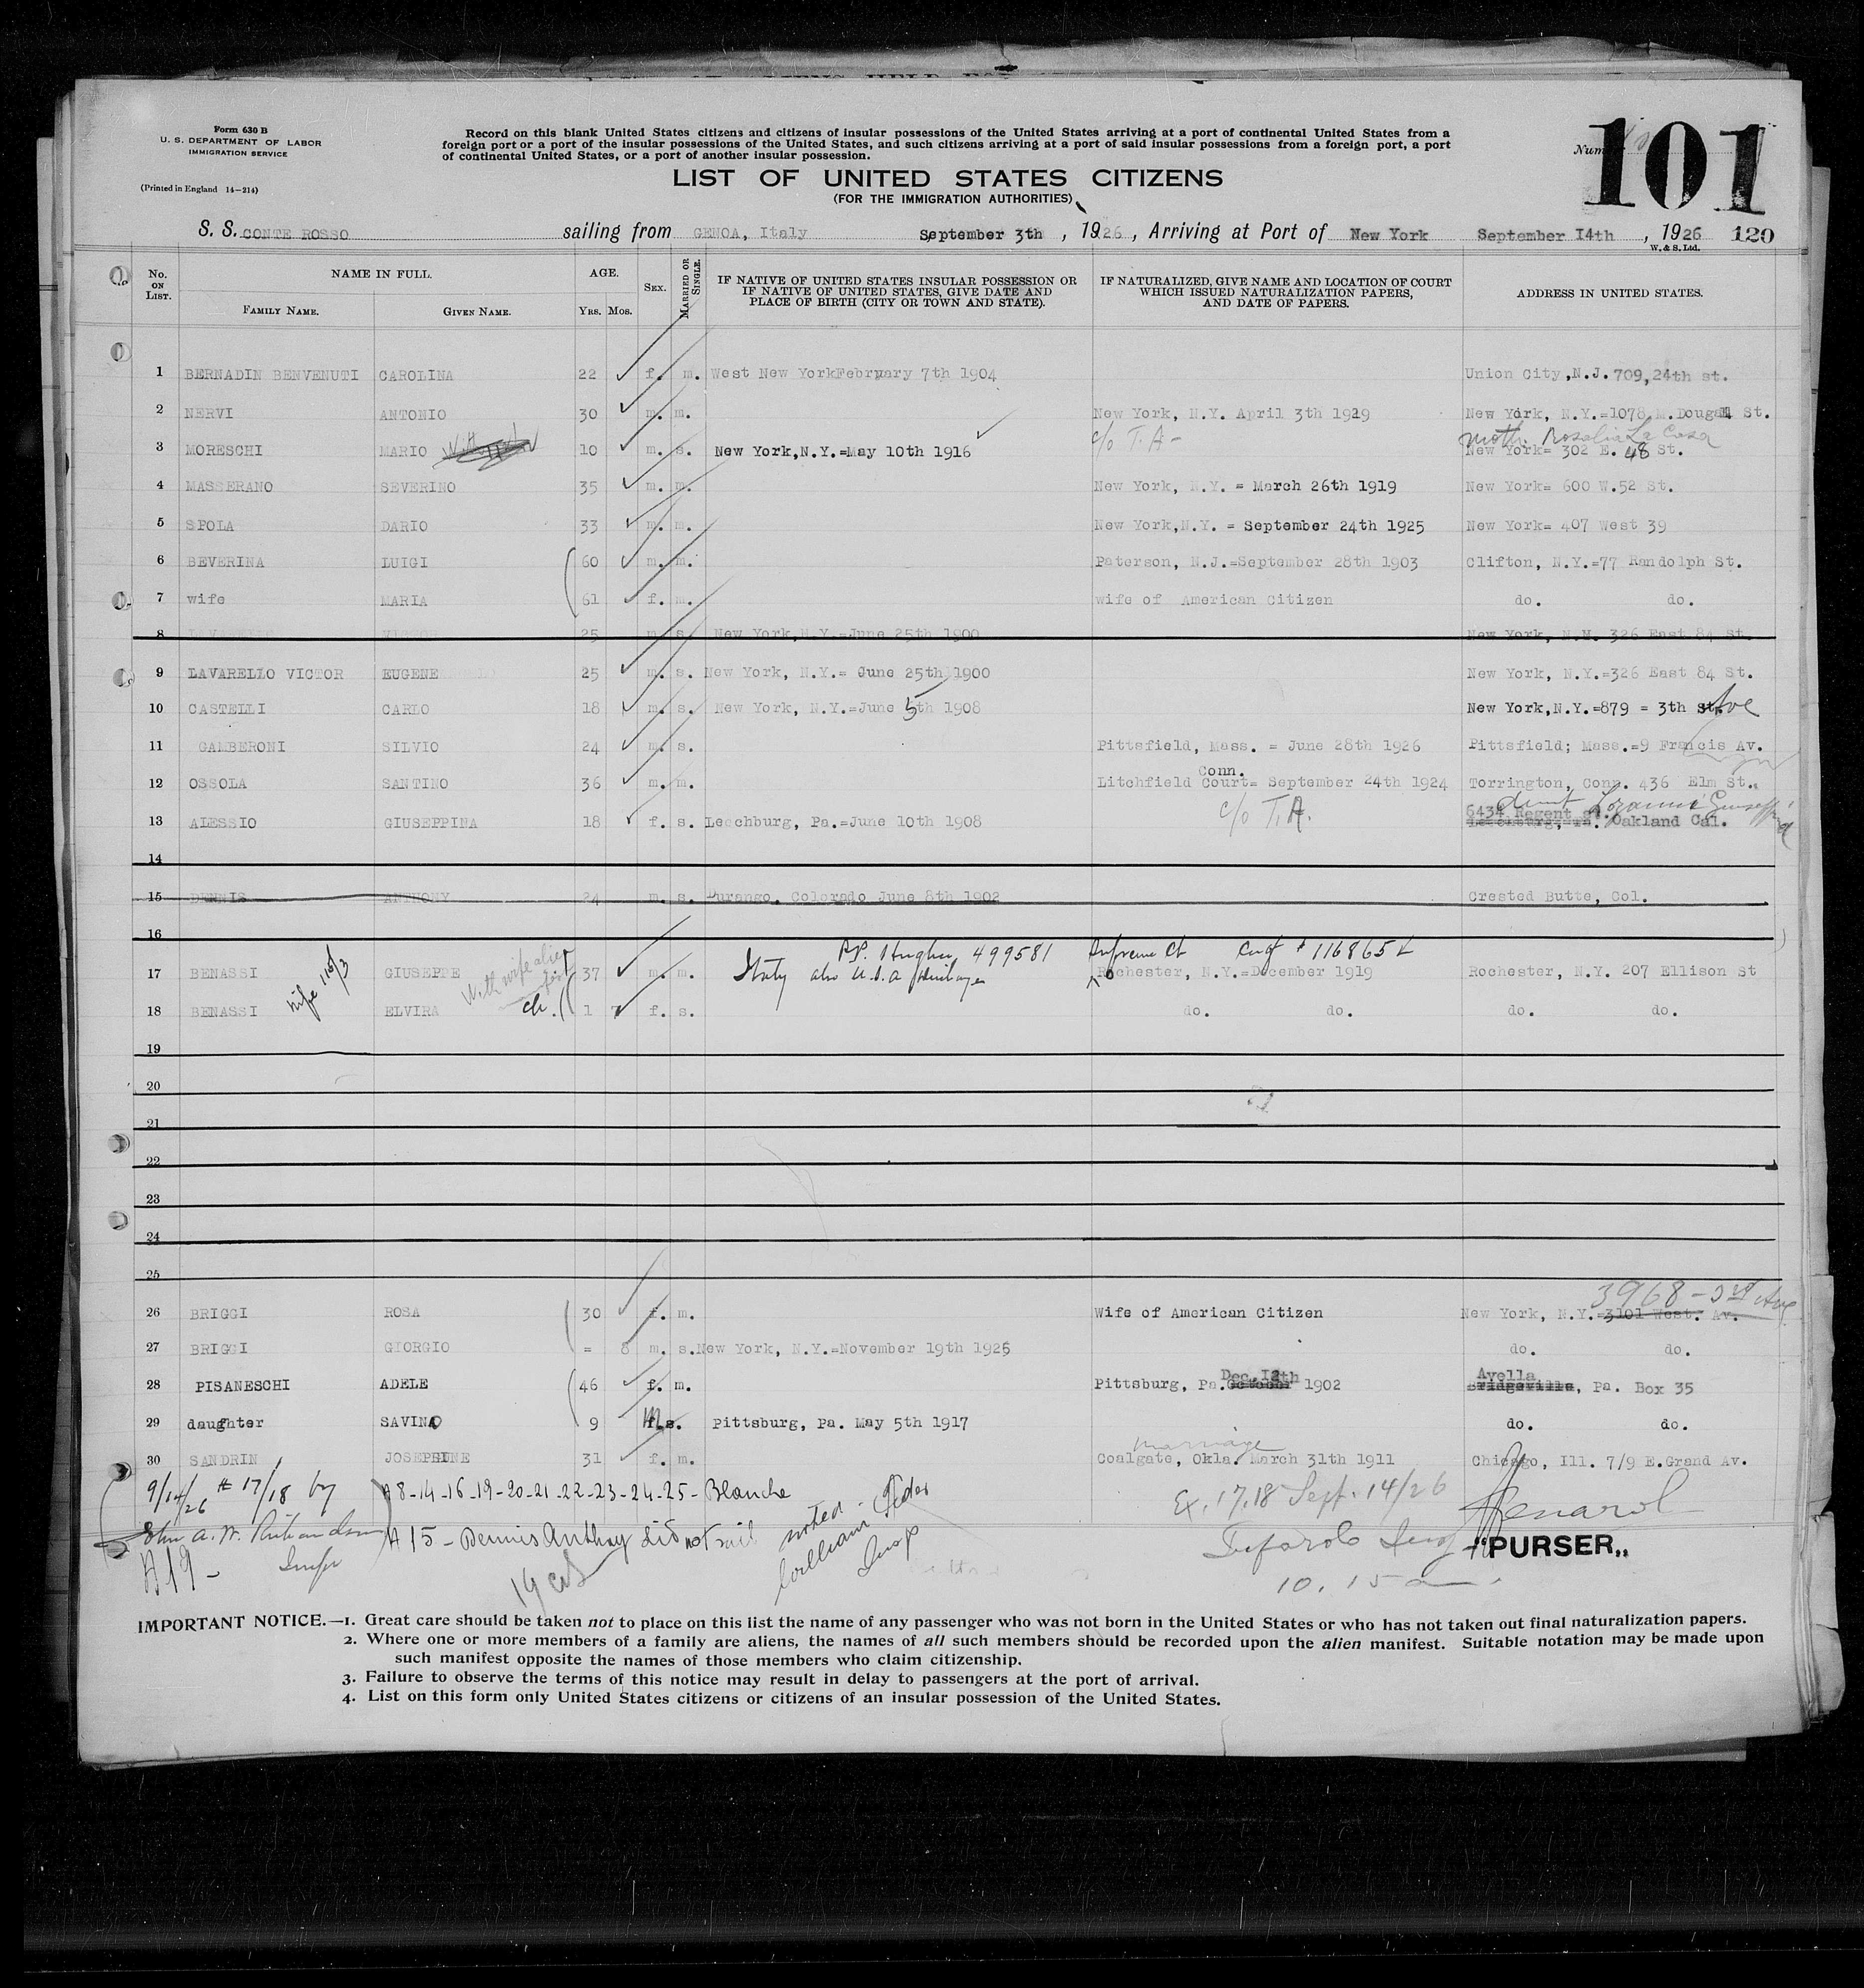 Form 630 B
U. S. DEPARTMENT OF LABOR
IMMIGRATION SERVICE
(Printed in England 14—214)
Record on this blank United States citizens and citizens of insular possessions of the United States arriving at a port of continental United States from a
foreign port or a port of the insular possessions of the United States, and such citizens arriving at a port of said insular possessions from a foreign port, a port
of continental United States, or a port of another insular possession.
101
LIST OF UNITED STATES CITIZENS
(FOR THE IMMIGRATION AUTHORITIES)
S. S. CONTE ROSSO sailing from GENOA, Italy September 3th, 1926, Arriving at Port of New York September 14th, 1926 120
W. & S. Ltd.
No. ON LIST. NAME IN FULL. FAMILY NAME. GIVEN NAME. AGE. YRS. MOS. SEX. MARRIED OR SINGLE. IF NATIVE OF UNITED STATES INSULAR POSSESSION OR IF NATIVE OF UNITED STATES, GIVE DATE AND PLACE OF BIRTH (CITY OR TOWN AND STATE). IF NATURALIZED, GIVE NAME AND LOCATION OF COURT WHICH ISSUED NATURALIZATION PAPERS, AND DATE OF PAPERS. ADDRESS IN UNITED STATES.
1 BERNADIN BENVENUTI CAROLINA 22 f. m. West New York February 7th 1904 Union City, N.J. 709, 24th st.
2 NERVI ANTONIO 30 m. m. New York, N.Y. April 3th 1929 New York, N.Y.=1078 M.Dougal St.
c/o T.A- moth. Rosalia La Casa
3 MORESCHI MARIO 10 m. s. New York,N.Y.=May 10th 1916 New York= 302 E. 48 St.
4 MASSERANO SEVERINO 35 m. m. New York, N.Y. = March 26th 1919 New York= 600 W.52 St.
5 SPOLA DARIO 33 m. m. New York,N.Y. = September 24th 1925 New York= 407 West 39
6 BEVERINA LUIGI 60 m. m. Paterson, N.J.=September 28th 1903 Clifton, N.Y.=77 Randolph St.
7 wife MARIA 61 f. m. wife of American Citizen do. do.
8 25 m. s. New York, N.Y.=June 25th 1900 New York, N.Y. 326 East 84 St.
9 LAVARELLO VICTOR EUGENE 25 m. s. New York, N.Y.= June 25th 1900 New York, N.Y.=326 East 84 St.
10 CASTELLI CARLO 18 m. s. New York, N.Y.=June 5th 1908 New York,N.Y.=879 = 3th st. Ave
11 GAMBERONI SILVIO 24 m. s. Pittsfield, Mass. = June 28th 1926 Pittsfield; Mass.=9 Francis Av.
12 OSSOLA SANTINO 36 m. m. Litchfield Conn. Court= September 24th 1924 Torrington, Conn. 436 Elm St.
c/o T.A. aunt
13 ALESSIO GIUSEPPINA 18 f. s. Leechburg, Pa.=June 10th 1908 6434 Regent st. Oakland Cal.
14
15 DENNIS ANTHONY 24 m. s. Durango, Colorado June 8th 1902 Crested Butte, Col.
16
499581 Supreme Ct # 116865
17 BENASSI GIUSEPPE with wife alien list 37 m. m. Italy also U.S.A Rochester, N.Y.=December 1919 Rochester, N.Y. 207 Ellison St
wife 115/3
18 BENASSI ELVIRA ch. 1 7 f. s. do. do. do. do.
19
20
21
22
23
24
25
3968 - 3rd Ave
26 BRIGGI ROSA 30 f. m. Wife of American Citizen New York, N.Y.=3101 West. Av.
27 BRIGGI GIORGIO = 8 m. s. New York, N.Y.=November 19th 1925 do. do.
28 PISANESCHI ADELE 46 f. m. Pittsburg, Pa. October Dec.12th 1902 Avella Bridgeville, Pa. Box 35
29 daughter SAVINO 9 M s. Pittsburg, Pa. May 5th 1917 do. do.
marriage
30 SANDRIN JOSEPHINE 31 f. m. Coalgate, Okla. March 31th 1911 Chicago, Ill. 7/9 E.Grand Av.
9/14/26 # 17/18 by
#8-14-16-19-20-21-22-23-24-25- Blanche
Ex. 17,18 Sept. 14/26
#15 - Dennis Anthony did not sail noted - William Insp
"PURSER„
10.15 a
IMPORTANT NOTICE.—1. Great care should be taken not to place on this list the name of any passenger who was not born in the United States or who has not taken out final naturalization papers.
2. Where one or more members of a family are aliens, the names of all such members should be recorded upon the alien manifest. Suitable notation may be made upon
such manifest opposite the names of those members who claim citizenship.
3. Failure to observe the terms of this notice may result in delay to passengers at the port of arrival.
4. List on this form only United States citizens or citizens of an insular possession of the United States.